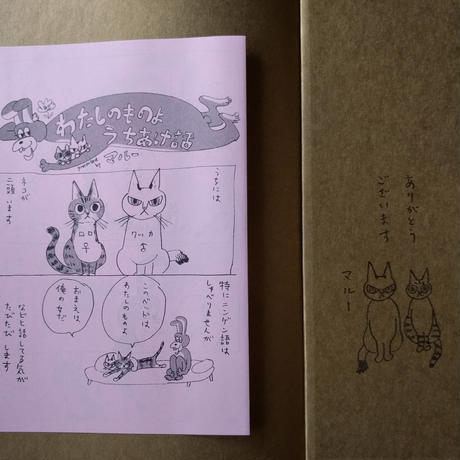 わたしのものよ
うちあけ話
by マルー
うちには
ネコが
二頭います
クッカ
ロロ
特にニンゲン語は
しゃべりませんが
このベッドは
わたしのものよ
おまえは
俺の女だ
などと話してる気が
たびたびします
ありがとう
ございます
マルー